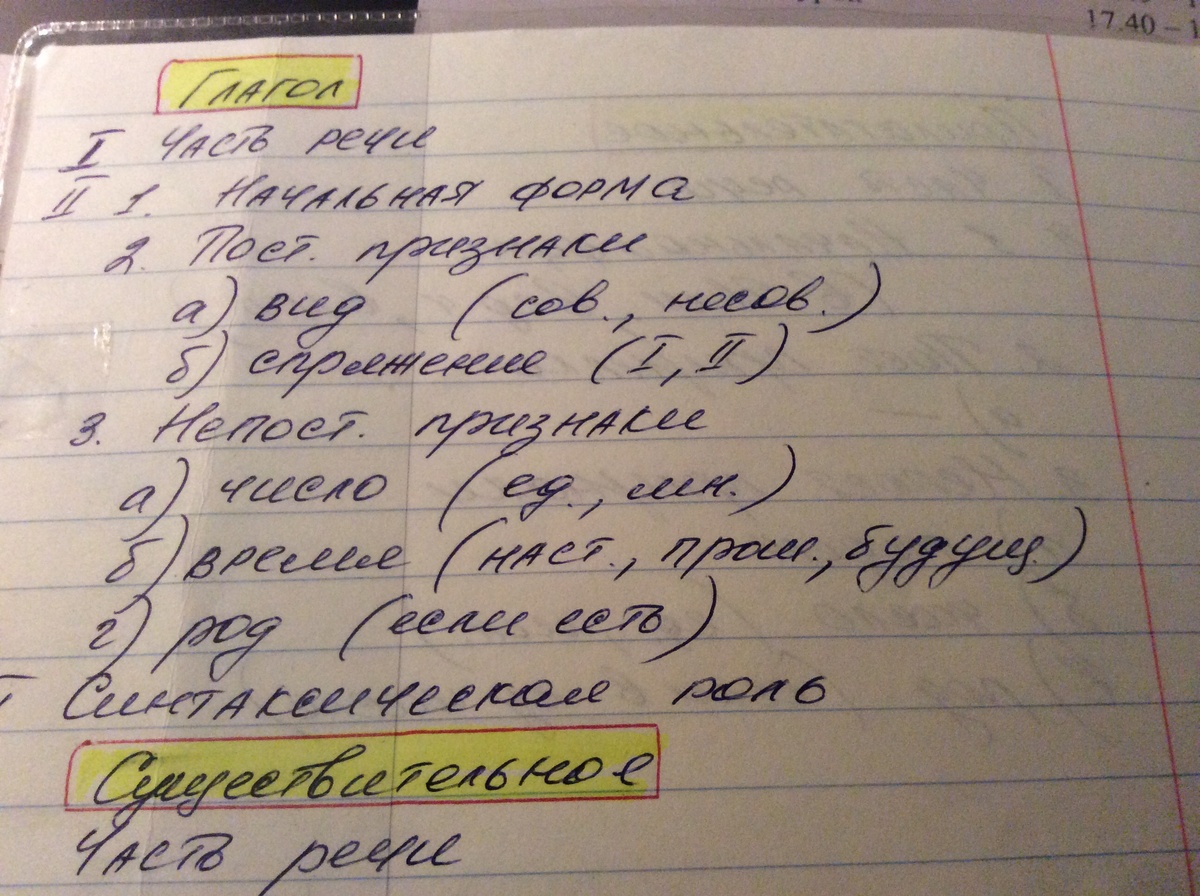 17.40 – 1
Глагол
I Часть речи
II 1. Начальная форма
2. Пост. признаки
а) вид (сов., несов.)
б) спряжение (I, II)
3. Непост. признаки
а) число (ед., мн.)
б) время (наст., прош., будущ.)
г) род (если есть)
Синтаксическая роль
Существительное
Часть речи